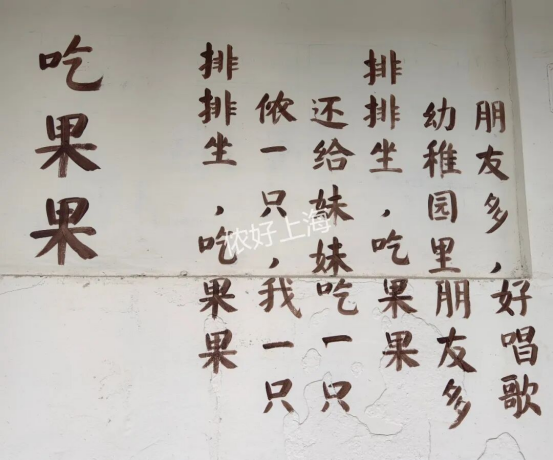 吃果果
排排坐,吃果果
侬一只,我一只
还给妹妹吃一只
排排坐,吃果果
幼稚园里朋友多
朋友多,好唱歌
侬好上海